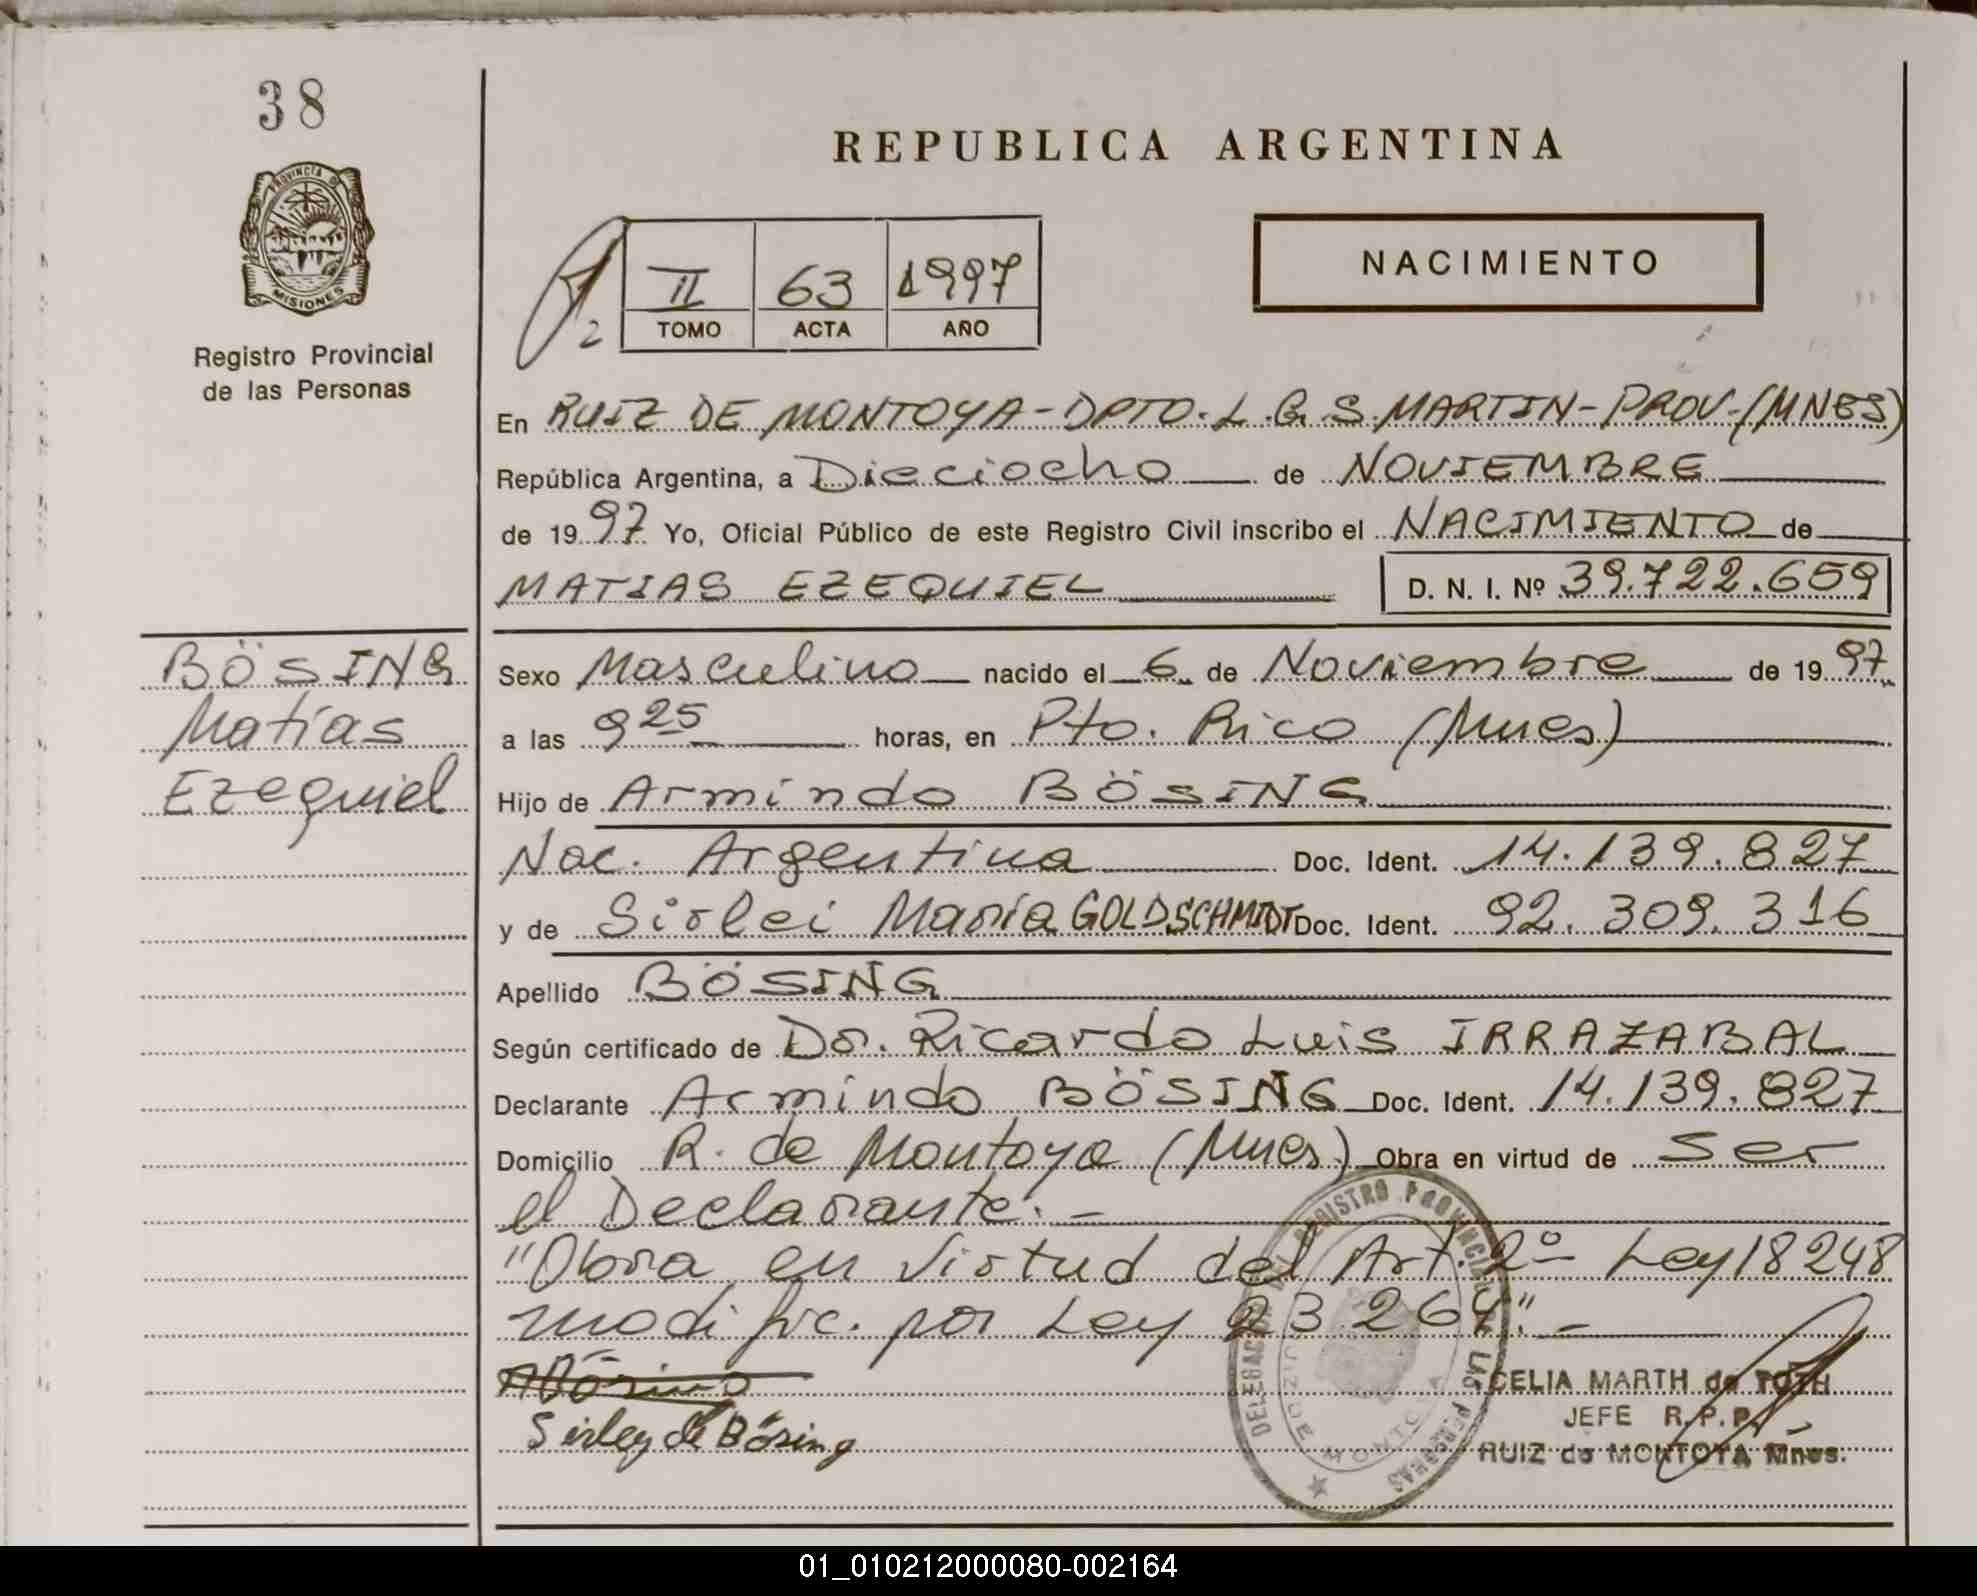 38
PROVINCIA DE
MISIONES
Registro Provincial
de las Personas
REPUBLICA ARGENTINA
NACIMIENTO
II 63 1997
TOMO ACTA AÑO
2
En RUIZ DE MONTOYA-DPTO. L.G.S. MARTIN-PROV.(MNES)
República Argentina, a Dieciocho de NOVIEMBRE
de 1997 Yo, Oficial Público de este Registro Civil inscribo el NACIMIENTO de
MATIAS EZEQUIEL D. N. I. Nº 39.722.659
BÖSING
Matías
Ezequiel
Sexo Masculino nacido el 6 de Noviembre de 1997
a las 9 25 horas, en Pto. Rico (Mnes)
Hijo de Armindo BÖSING
Nac. Argentina Doc. Ident. 14.139.827
y de Sirlei María GOLDSCHMIDT Doc. Ident. 92.309.316
Apellido BÖSING
Según certificado de Dr. Ricardo Luis IRRAZABAL
Declarante Armindo BÖSING Doc. Ident. 14.139.827
Domicilio R. de Montoya (Mnes) Obra en virtud de ser
el Declarante.-
"Obra en virtud del Art. 2º Ley 18248
modific. por Ley 23264".-
ABösing
Sirley de Bösing
DELEGACION DEL REGISTRO PROVINCIAL DE LAS PERSONAS
RUIZ DE MONTOYA
CELIA MARTH de TOTH
JEFE R.P.P.
RUIZ de MONTOYA Mnes.
01_010212000080-002164